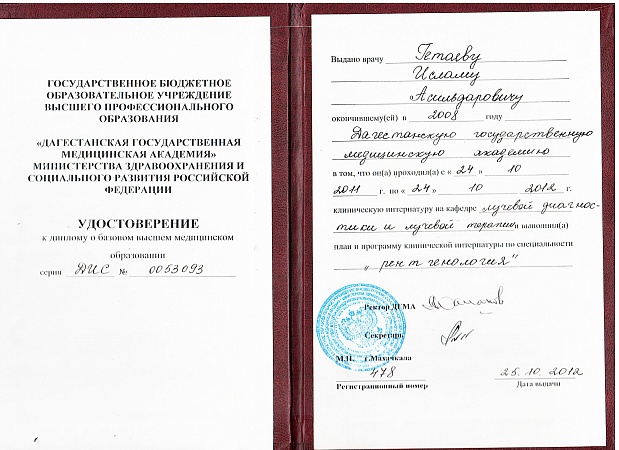 ГОСУДАРСТВЕННОЕ БЮДЖЕТНОЕ
ОБРАЗОВАТЕЛЬНОЕ УЧРЕЖДЕНИЕ
ВЫСШЕГО ПРОФЕССИОНАЛЬНОГО
ОБРАЗОВАНИЯ
«ДАГЕСТАНСКАЯ ГОСУДАРСТВЕННАЯ
МЕДИЦИНСКАЯ АКАДЕМИЯ»
МИНИСТЕРСТВА ЗДРАВООХРАНЕНИЯ И
СОЦИАЛЬНОГО РАЗВИТИЯ РОССИЙСКОЙ
ФЕДЕРАЦИИ
УДОСТОВЕРЕНИЕ
к диплому о базовом высшем медицинском
образовании
серия ДИС № 0053093
Выдано врачу Гетаеву
Исламу
Асильдаровичу
окончившему(ей) в 2008 году
Дагестанскую государственную
медицинскую академию
в том, что он(а) проходил(а) с « 24 » 10
2011 г. по « 24 » 10 2012 г.
клиническую интернатуру на кафедре лучевой диагнос-
тики и лучевой терапии и выполнил(а)
план и программу клинической интернатуры по специальности
„ рентгенология"
Ректор ДГМА
Секретарь
М.П. г.Махачкала
478
Регистрационный номер
25.10.2012
Дата выдачи